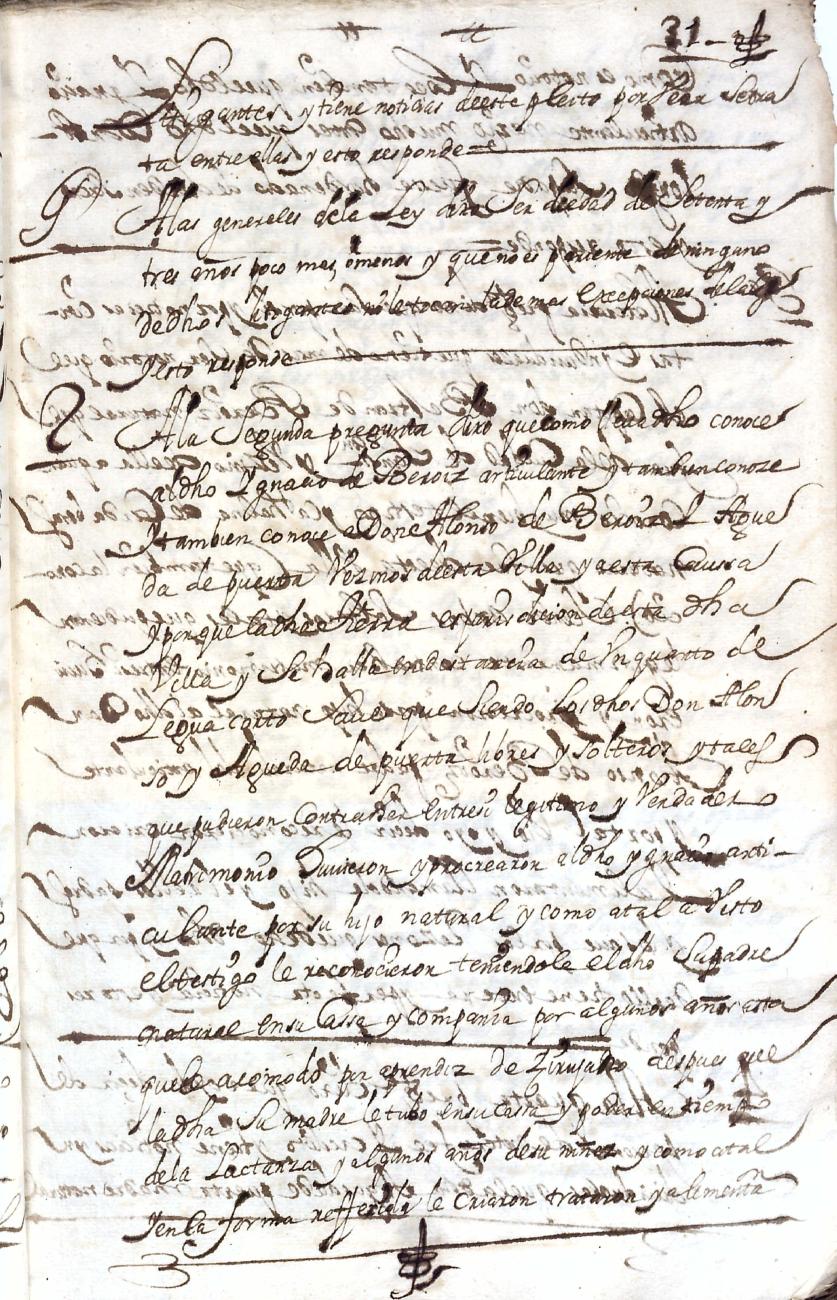 31
litigantes, y tiene noticias deeste pleito por Ver Setra
ta entre ellas y esto responde
G A las generales dela Ley dixo Ser deedad de Setenta y
tres años poco mas, ô menos y que no es pariente de ninguno
de dhos litigantes ni le tocan las demas excepciones dela
y esto responde
2 A la Segunda pregunta dixo que como lleua dho conoce
al dho Ygnacio de Beroiz articulante y tambien conoze
y tambien conoce a Don Alonso de Beroiz y Ague
da de puerta Vezinos deesta Villa y aesta Caussa
y porque la dha tierra es jurisdicion de esta dha
Villa y Se halla en distancia de Vn quarto de
Legua corto Saue que Siendo los dhos Don Alon
so y Agueda de puerta libres y solteros y tales
que pudieron Contraher entresi legitimo y Verdadero
Matrimonio tuuieron y procrearon al dho ygnacio arti-
culante por su hijo natural y como atal a Visto
el testigo le reconocieron teniendole el dho Su padre
natural en su Cassa y Compañia por algunos años asta
que le acomodo por aprendiz de Zirujano despues que
la dha Su madre le tubo en su cassa y poder en tiempo
dela Lactanza y algunos años de su niñez y como atal
y en la forma refferida le Criaron trataron y alimenta